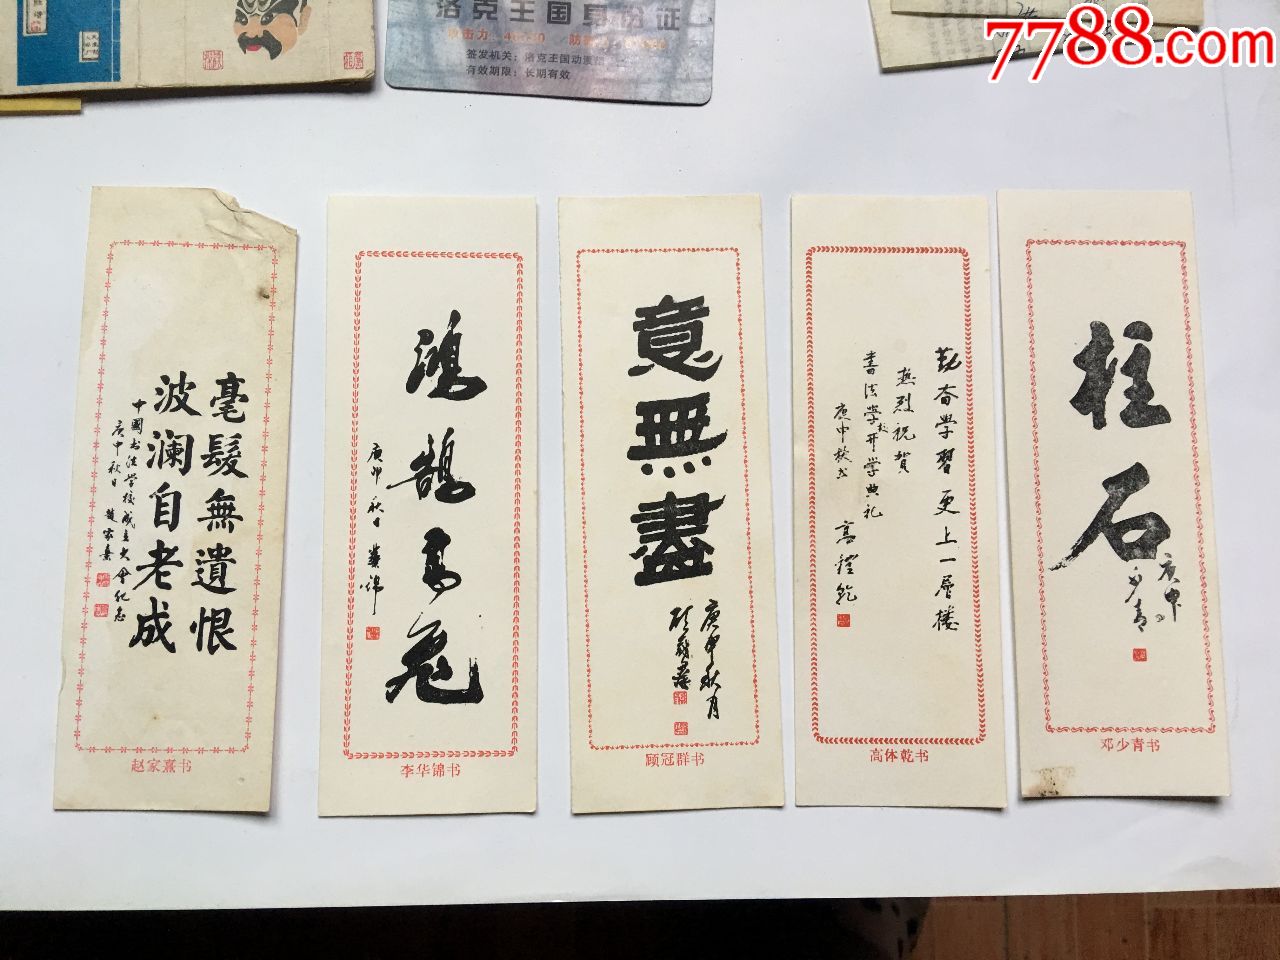 7788.com
洛克王国身份证
签发机关：洛克王国动漫
有效期限：长期有效
毫髮無遺恨
波澜自老成
中國书法学校成立大會纪念
庚申秋日 赵家熹
赵家熹书
鸿鹄高飛
秋日 華锦
李华锦书
意無盡
庚申秋月
顾冠群书
勤奋学習更上一层楼
热烈祝贺
書法学校开学典礼
庚申秋
高體乾
高体乾书
柱石
庚申
少青
邓少青书